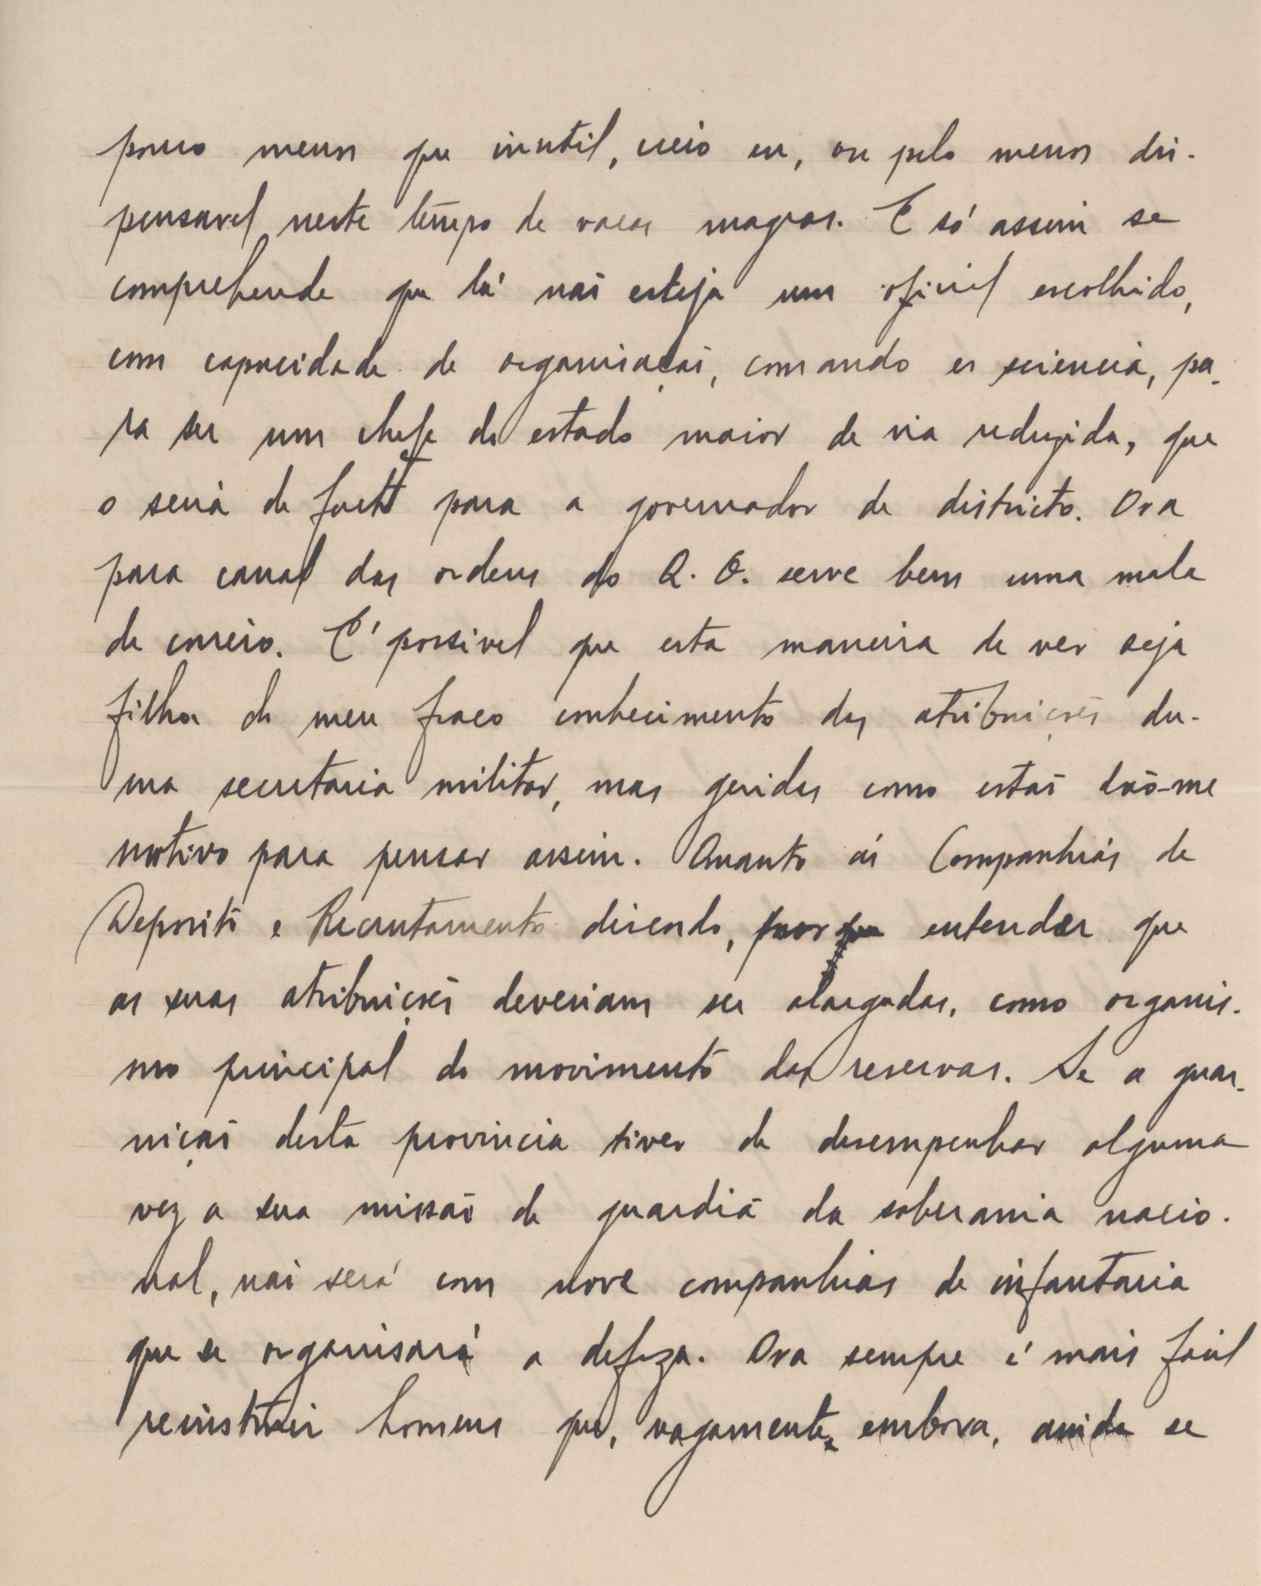 pouco menos que inutil, creio eu, ou pelo menos dis-
pensavel neste tempo de vacas magras. E só assim se
comprehende que lá não esteja um oficial escolhido,
com capacidade de organisação, comando e sciencia, pa-
ra ser um chefe do estado maior de via reduzida, que
o seria de facto para a governador de districto. Ora
para canal das ordens do Q. G. serve bem uma mala
de correio. E' possivel que esta maneira de ver seja
filha do meu fraco conhecimento das atribuições du-
ma secretaria militar, mas geridas como estão dão-me
motivo para pensar assim. Quanto ás Companhias de
Deposito e Recrutamento discordo, por entender que
as suas atribuições deveriam ser alargadas, como organis-
mo principal do movimento das reservas. Se a guar-
nição desta provincia tiver de desempenhar alguma
vez a sua missão de guardiã da soberania nacio-
nal, não será com nove companhias de infantaria
que se organisará a defeza. Ora sempre é mais facil
reinstruir homens que, vagamente embora, ainda se